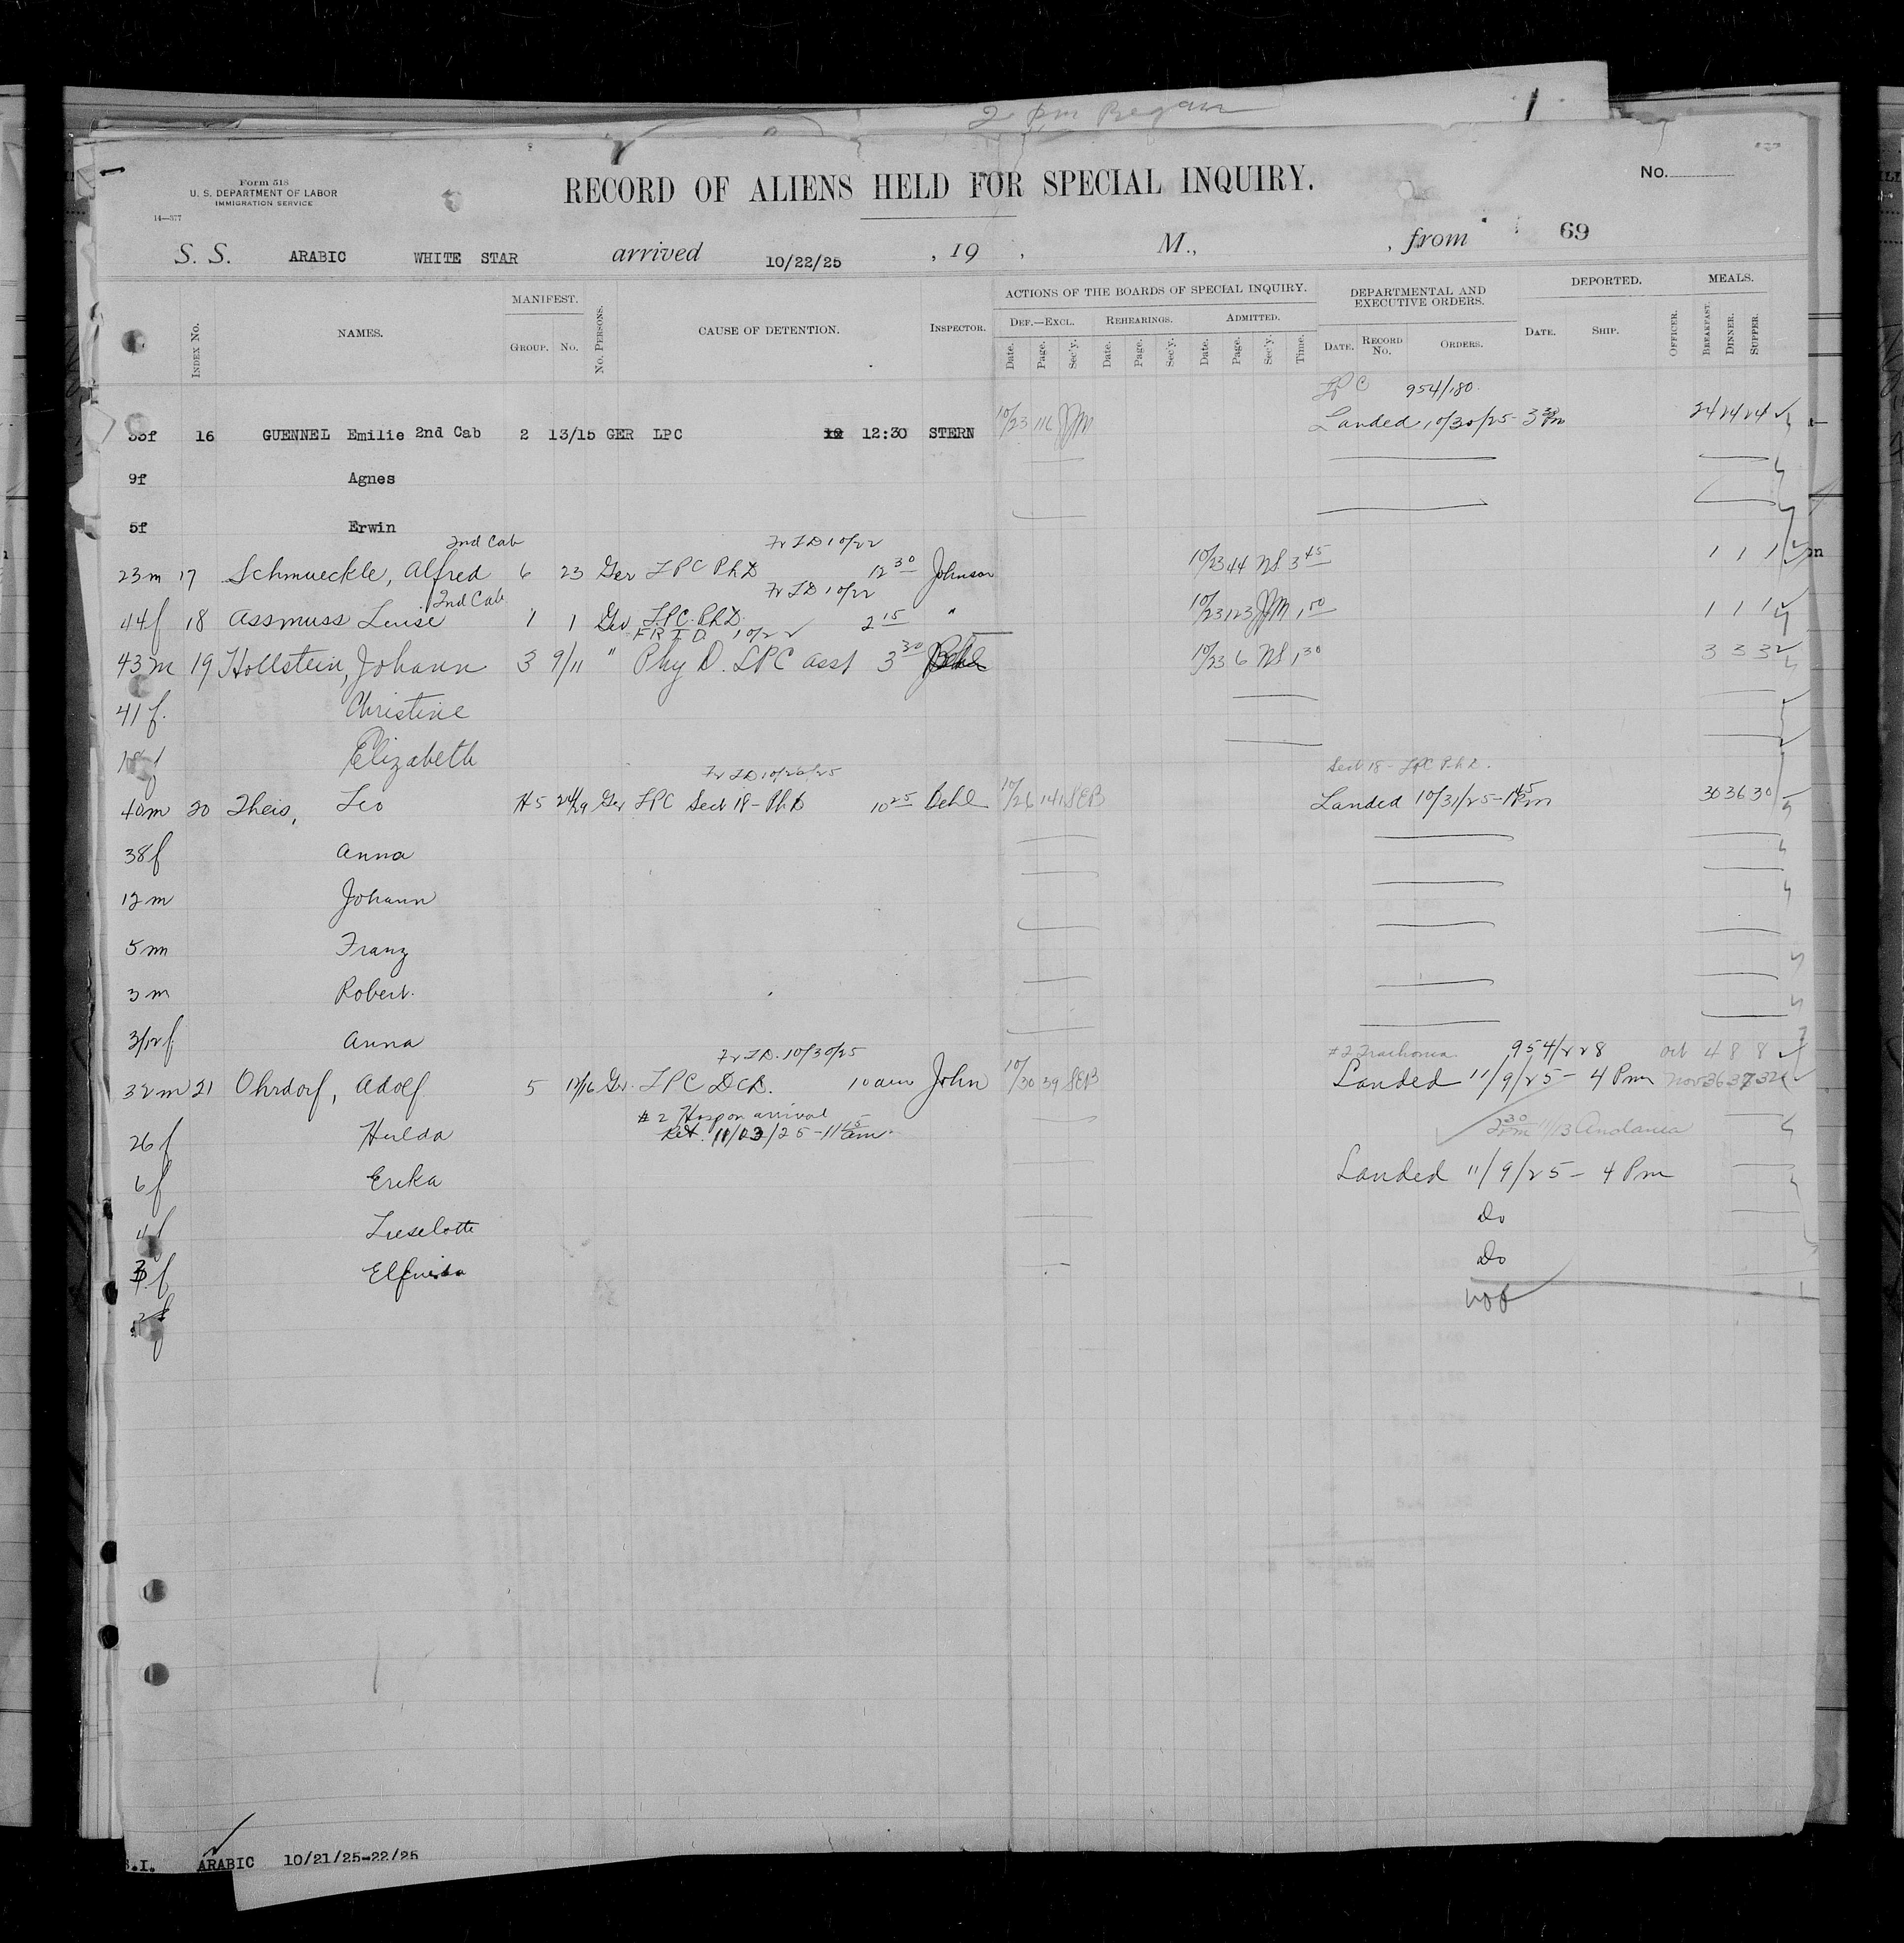 2 pm Began
Form 518
U. S. DEPARTMENT OF LABOR
IMMIGRATION SERVICE
14—377
RECORD OF ALIENS HELD FOR SPECIAL INQUIRY.
No.
69
S. S. ARABIC WHITE STAR arrived 10/22/25 , 19 , M., , from
INDEX No. NAMES. MANIFEST. GROUP. No. No. PERSONS. CAUSE OF DETENTION. INSPECTOR. ACTIONS OF THE BOARDS OF SPECIAL INQUIRY. DEF.—EXCL. Date. Page. Sec'y. REHEARINGS. Date. Page. Sec'y. ADMITTED. Date. Page. Sec'y. Time. DEPARTMENTAL AND EXECUTIVE ORDERS. DATE. RECORD No. ORDERS. DEPORTED. DATE. SHIP. OFFICER. MEALS. BREAKFAST. DINNER. SUPPER.
LPC 954/180
16 GUENNEL Emilie 2nd Cab 2 13/15 GER LPC 12:30 STERN 10/23 Landed 10/30/25 - 3 30 Pm 24 24 24
9f Agnes
5f Erwin
2nd Cab Fr TD 10/22
23m 17 Schmueckle, Alfred 6 23 Ger LPC PhD 12 30 Johnson 10/23 44 NS 3 45 1 1 1
2nd Cab Fr TD 10/22
44f 18 Assmuss Luise 1 1 Ger LPC PhD. 2 15 " 10/23 123 JJM 1 50 1 1 1
FR T D 10/22
43m 19 Hollstein, Johann 3 9/11 " Phy D. LPC asst 3 30 Behl 10/23 6 NS 1 30 3 3 3
41f. Christine
Elizabeth
Fr TD 10/26/25 Sect 18 - LPC PhD.
40m 20 Theis, Leo H5 24/29 Ger LPC Sect 18 - PhD 10 25 Behl 10/26 141 SEB Landed 10/31/25 - 1 45 Pm 30 36 30
38f Anna
12m Johann
5m Franz
3m Robert.
3/12f Anna
Fr TD. 10/30/25 #2 Trachoma 954/228 Oct 4 8 8
32m 21 Ohrdorf, Adolf 5 12/16 Gr. LPC DCD. 10 am John 10/30 39 SEB Landed 11/9/25 - 4 Pm Nov
#2 Hosp on arrival
26f Hulda Ret. 11/13/25 - 11 15 am. 2 30 pm 11/13 Andania
6f Erika Landed 11/9/25 - 4 Pm
4f Lieselotte Do
f Elfrieda Do
S.I. ARABIC 10/21/25-22/25